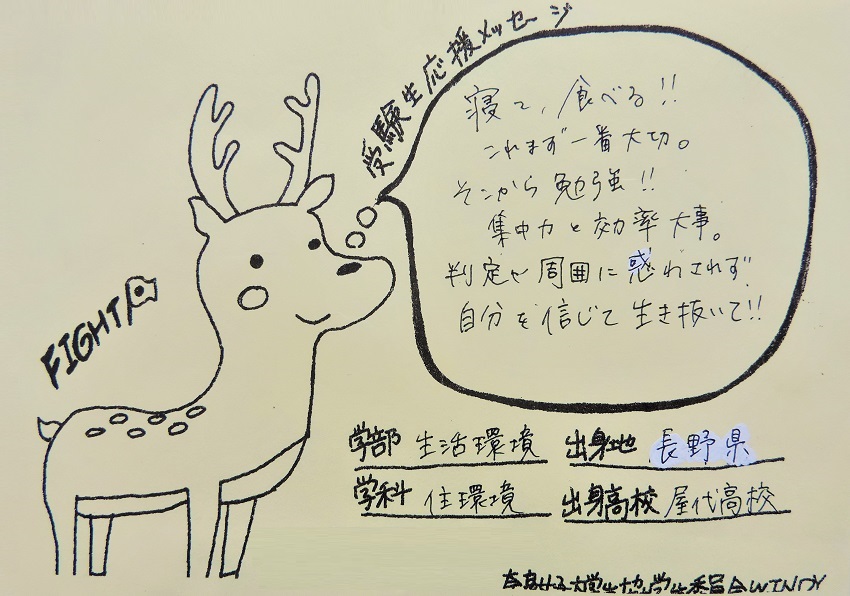 受験生応援メッセージ
寝て、食べる!!
これまず一番大切。
そこから勉強!!
集中力と効率大事。
判定や周囲に惑わされず
自分を信じて生き抜いて!!
FIGHT
学部 生活環境 出身地 長野県
学科 住環境 出身高校 屋代高校
奈良女子大学生協学生委員会WINDY